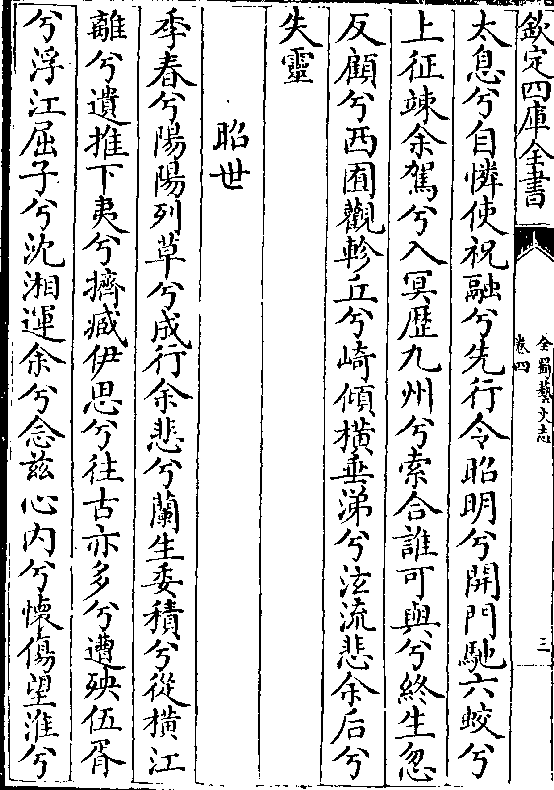 欽定四庫全書
全蜀藝文志
卷四
三
太息兮自憐使祝融兮先行令昭明兮開門馳六蛟兮
上征竦余駕兮入冥歴九州兮索合誰可與兮終生忽
反顧兮西囿觀軫丘兮崎傾橫垂涕兮泫流悲余后兮
失靈
昭世
季春兮陽陽列草兮成行余悲兮蘭生委積兮從橫江
離兮遺推下夷兮擠臧伊思兮往古亦多兮遭殃伍胥
兮浮江屈子兮沈湘運余兮念兹心内兮懷傷望淮兮